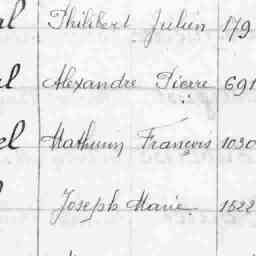 al Philibert Julien 179
el Alexandre Pierre 691
el Mathurin François 1030
Joseph Marie 1522